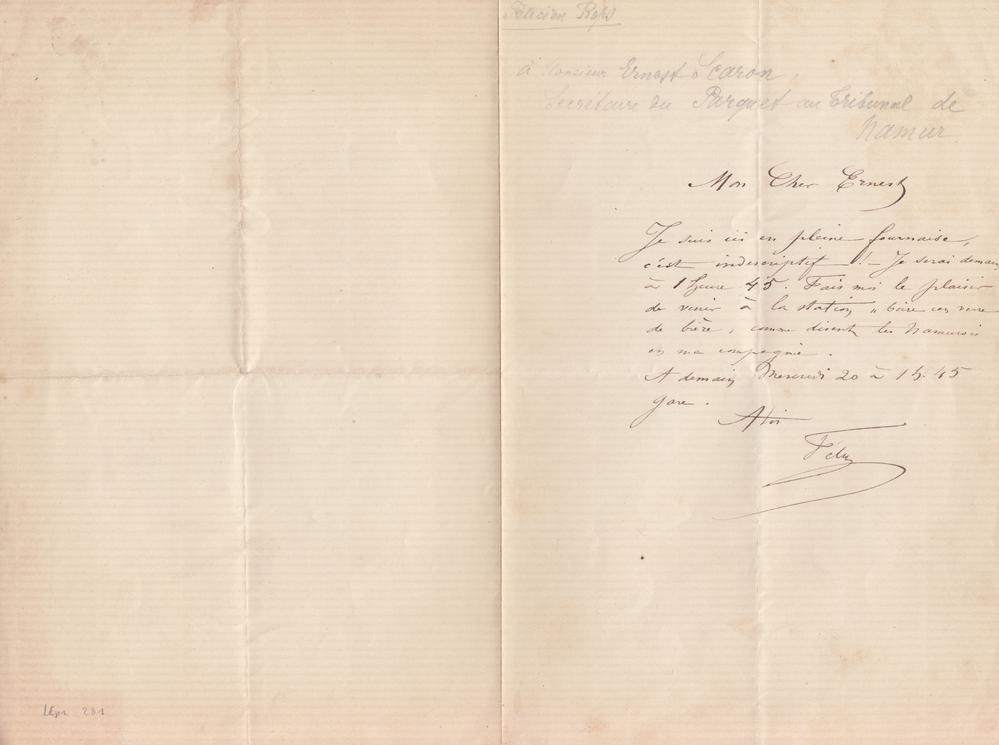 Félicien Rops
à Monsieur Ernest Scaron,
Secrétaire du Parquet au Tribunal de
Namur.
Mon Cher Ernest
Je suis ici en pleine fournaise,
c'est indescriptif ! – Je serai demain
à 1 heure 45. Fais moi le plaisir
de venir à la station „ boire un verre
de bière, comme disent les Namurois
en ma compagnie.
A demain Mercredi 20 à 1 h. 45
gare.
A toi
Fély
LEpr 231